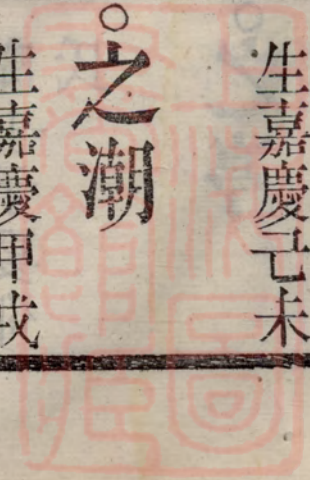 生嘉慶己未
○之潮
生嘉慶甲戌